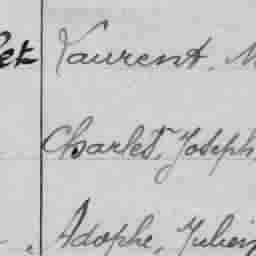 Laurent, M
Charles, Joseph,
Adophe, Julien